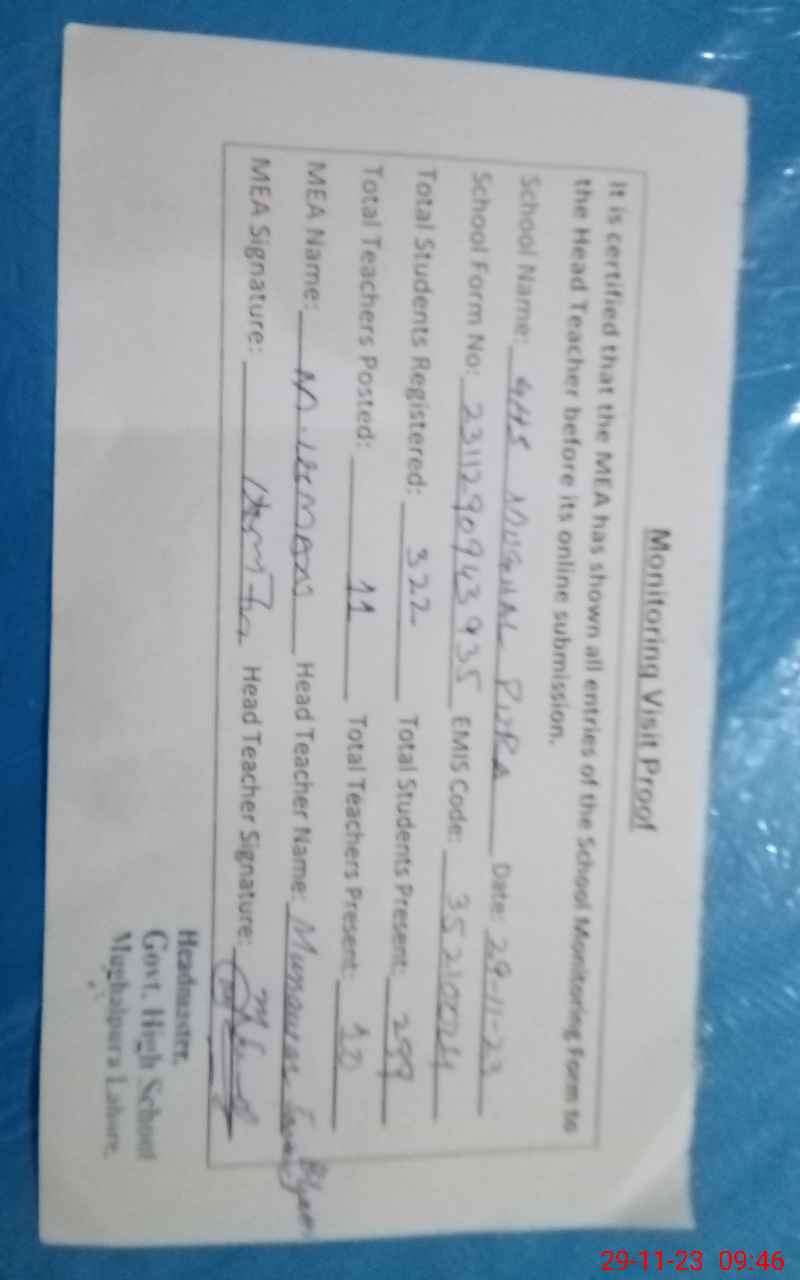 Monitoring Visit Proof
It is certified that the MEA has shown all entries of the School Monitoring Form to
the Head Teacher before its online submission.
School Name: GHS MUGHAL PURA Date: 29-11-23
School Form No: 2311290943935 EMIS Code:
Total Students Registered: 322 Total Students Present: 299
Total Teachers Posted: 11 Total Teachers Present: 10
MEA Name: M. USMAN Head Teacher Name:
MEA Signature: Head Teacher Signature:
Headmaster,
Govt. High School
Mughalpura Lahore.
29-11-23 09:46